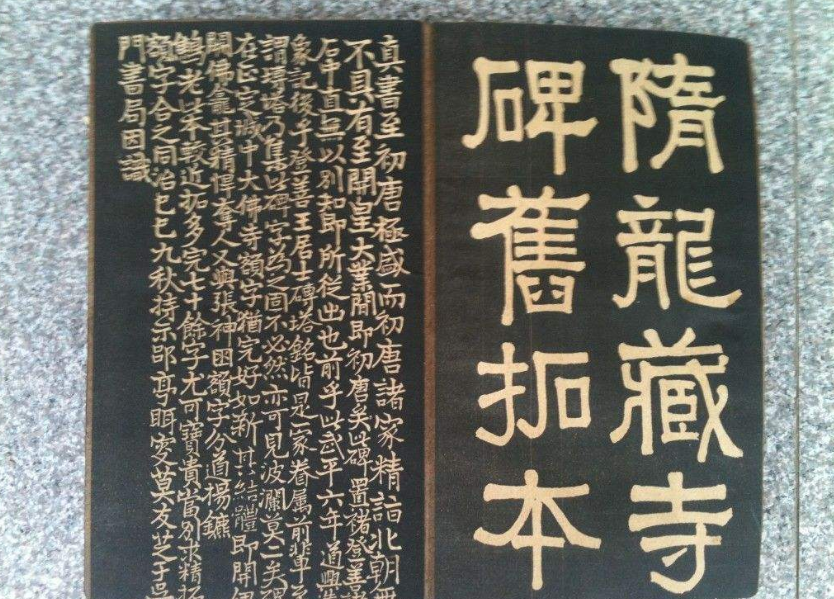 隋龍藏寺
碑舊拓本
真書至初唐極盛而初唐諸家精詣北朝無
不具有至開皇大業間即初唐矣此碑置褚登善諸
石中直無以別知即所從出也前乎此武平六年道興造
象記後乎登善王居士磚塔銘皆是一家眷属前輩至
謂塼塔乃集此碑字為之固不必然亦可見波瀾莫二矣碑
在正定城中大佛寺額字猶完好如新其結體即開伊
闕佛龕其精悍奪人又與張神囧額字分道楊鑣
鶴老此本較近拓多完七十餘字尤可寶貴當別求精拓
額字合之同治己巳九秋持示郘亭眲叟莫友芝于吳
門書局因識